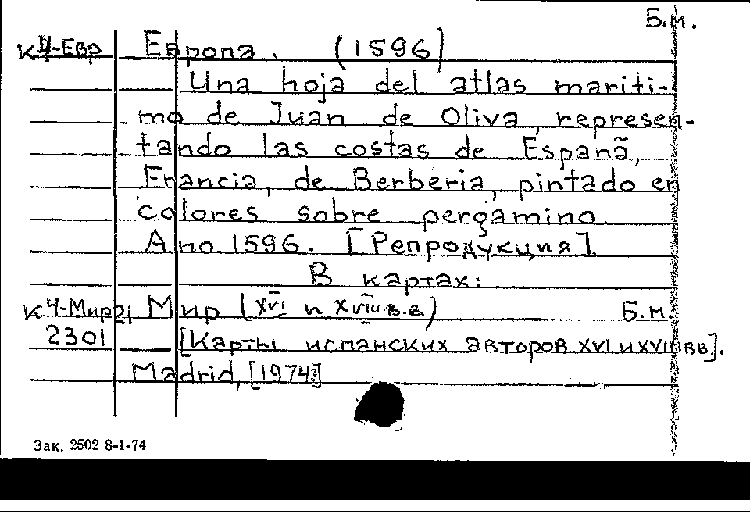 Б.м.
К4-Евр Европа. (1596)
Una hoja del atlas mariti-
mo de Juan de Oliva, represen-
tando las costas de Espanã,
Francia, de Berberia, pintado en
colores sobre pergamino.
Ano 1596. [Репродукция].
В картах:
К4-Мир21 Мир (XVI и XVIII в.в.) Б.м.
2301 [Карты испанских авторов XVI и XVII вв].
Madrid, [1974]
Зак. 2502 8-1-74